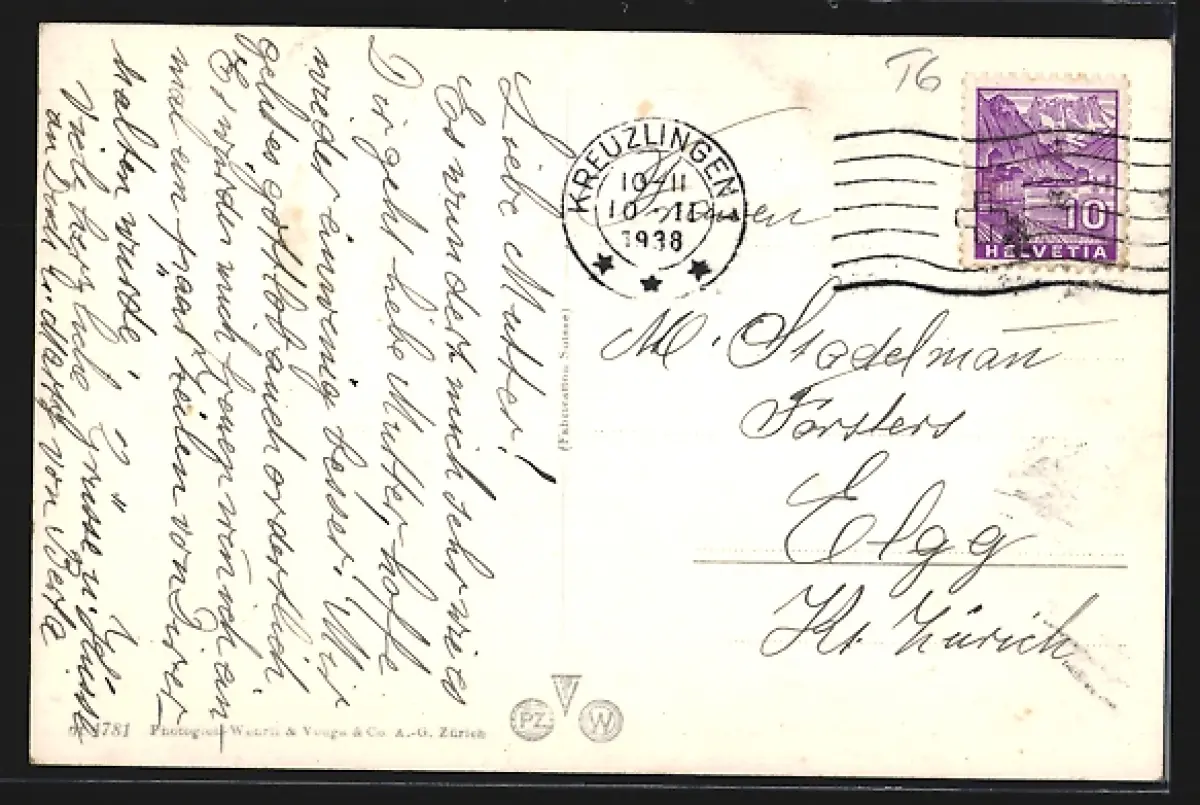 Liebe Mutter!
Es wundert mich sehr wie es
Dir geht liebe Mutter hoffe
wieder ein wenig besser! Mir
geht es gottlob auch ordentlich
Es würden mich
mal ein paar Zeilen von Dir er-
halten würde!
Viel herzliche Grüsse u. Küsse
an Dich von Berta
6781 Photoglob-Wehrli & Vouga & Co. A.-G. Zürich
(Fabrication Suisse)
PZ W
T6
KREUZLINGEN 1
10-11
10. II
1938
10
HELVETIA
Frauen
M. Stadelman
Forsters
Elgg
Kt. Zürich